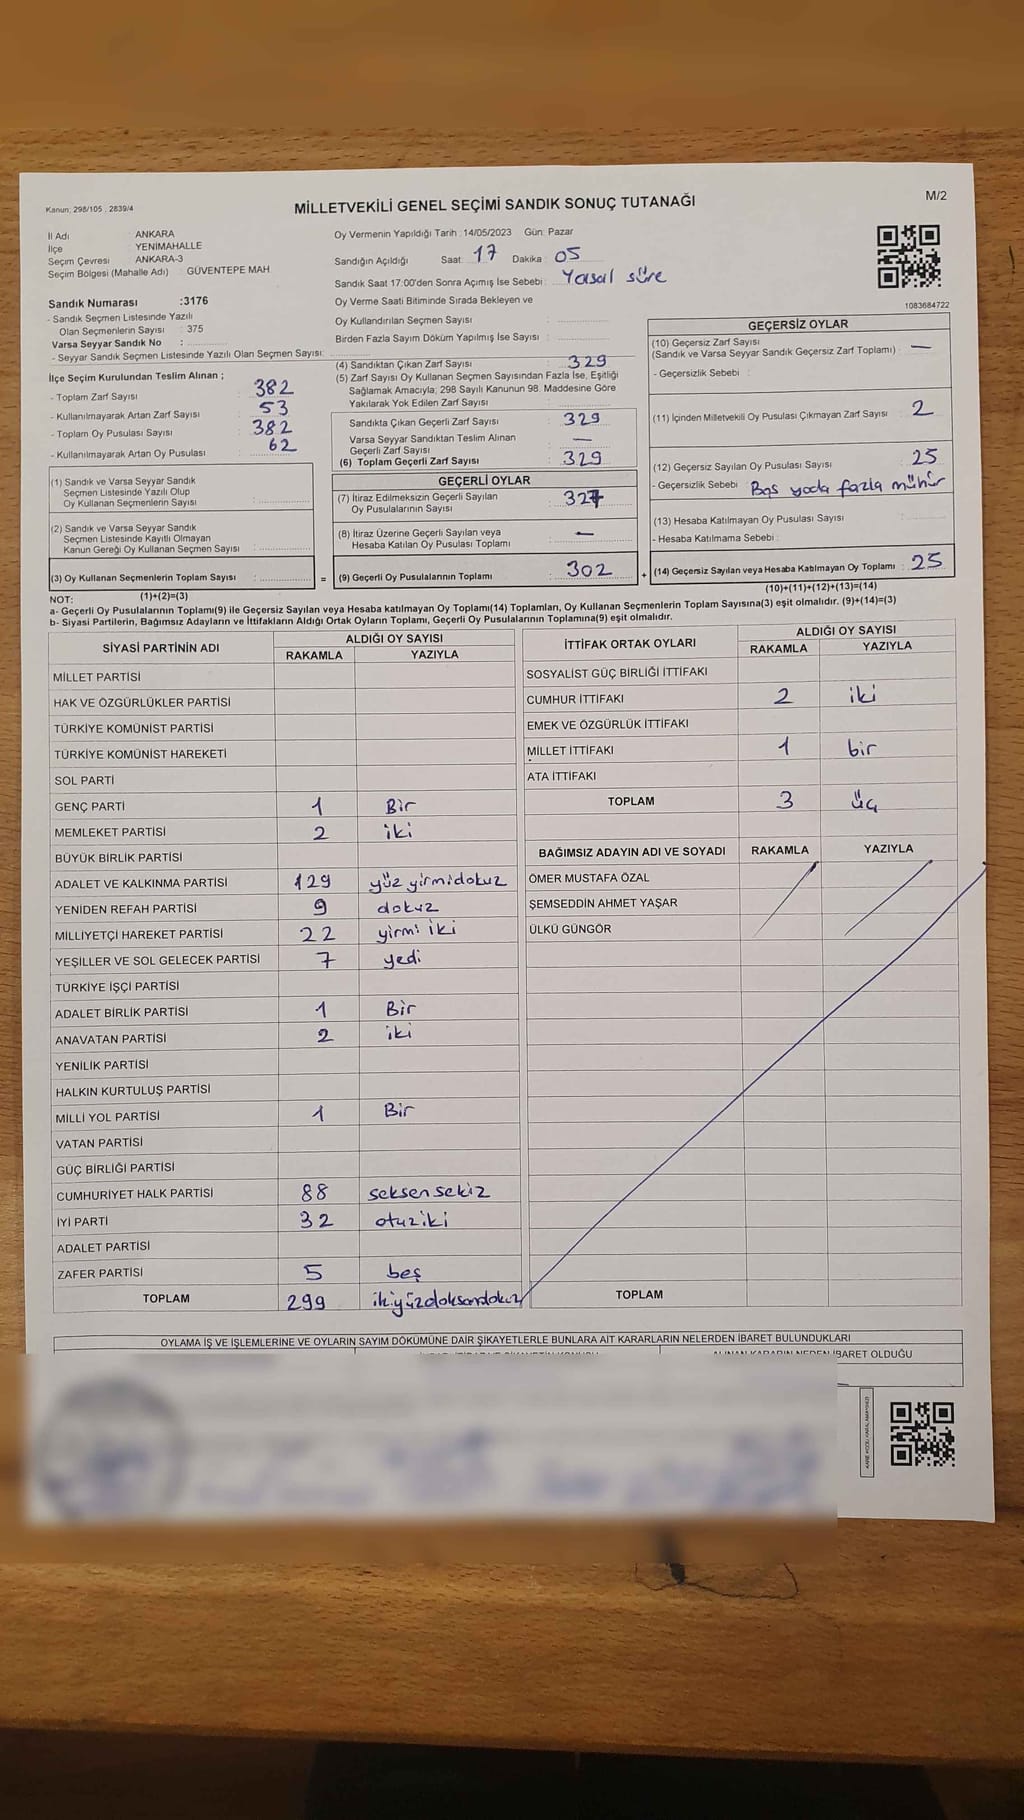 Kanun; 298/105 , 2839/4
MİLLETVEKİLİ GENEL SEÇİMİ SANDIK SONUÇ TUTANAĞI
M/2
İl Adı : ANKARA
İlçe YENİMAHALLE
Seçim Çevresi : ANKARA-3
Seçim Bölgesi (Mahalle Adı) : GÜVENTEPE MAH
Sandık Numarası :3176
- Sandık Seçmen Listesinde Yazılı
Olan Seçmenlerin Sayısı : 375
Varsa Seyyar Sandık No :
- Seyyar Sandık Seçmen Listesinde Yazılı Olan Seçmen Sayısı:
İlçe Seçim Kurulundan Teslim Alınan ;
- Toplam Zarf Sayısı : 382
- Kullanılmayarak Artan Zarf Sayısı : 53
- Toplam Oy Pusulası Sayısı : 382
- Kullanılmayarak Artan Oy Pusulası : 62
(1) Sandık ve Varsa Seyyar Sandık
Seçmen Listesinde Yazılı Olup
Oy Kullanan Seçmenlerin Sayısı :
(2) Sandık ve Varsa Seyyar Sandık
Seçmen Listesinde Kayıtlı Olmayan
Kanun Gereği Oy Kullanan Seçmen Sayısı :
(3) Oy Kullanan Seçmenlerin Toplam Sayısı : =
(1)+(2)=(3)
Oy Vermenin Yapıldığı Tarih :14/05/2023 Gün: Pazar
Sandığın Açıldığı Saat: 17 Dakika : 05
Sandık Saat 17:00'den Sonra Açımış İse Sebebi : Yasal süre
Oy Verme Saati Bitiminde Sırada Bekleyen ve
Oy Kullandırılan Seçmen Sayısı :
Birden Fazla Sayım Döküm Yapılmış İse Sayısı :
(4) Sandıktan Çıkan Zarf Sayısı : 329
(5) Zarf Sayısı Oy Kullanan Seçmen Sayısından Fazla İse, Eşitliği
Sağlamak Amacıyla; 298 Sayılı Kanunun 98. Maddesine Göre
Yakılarak Yok Edilen Zarf Sayısı :
Sandıkta Çıkan Geçerli Zarf Sayısı : 329
Varsa Seyyar Sandıktan Teslim Alınan
Geçerli Zarf Sayısı : —
(6) Toplam Geçerli Zarf Sayısı : 329
GEÇERLİ OYLAR
(7) İtiraz Edilmeksizin Geçerli Sayılan
Oy Pusulalarının Sayısı : 327
(8) İtiraz Üzerine Geçerli Sayılan veya
Hesaba Katılan Oy Pusulası Toplamı : —
(9) Geçerli Oy Pusulalarının Toplamı : 302 +
1083684722
GEÇERSİZ OYLAR
(10) Geçersiz Zarf Sayısı
(Sandık ve Varsa Seyyar Sandık Geçersiz Zarf Toplamı) : —
- Geçersizlik Sebebi :
(11) İçinden Milletvekili Oy Pusulası Çıkmayan Zarf Sayısı : 2
(12) Geçersiz Sayılan Oy Pusulası Sayısı : 25
- Geçersizlik Sebebi : Boş yada fazla mühür
(13) Hesaba Katılmayan Oy Pusulası Sayısı :
- Hesaba Katılmama Sebebi :
(14) Geçersiz Sayılan veya Hesaba Katılmayan Oy Toplamı : 25
(10)+(11)+(12)+(13)=(14)
NOT:
a- Geçerli Oy Pusulalarının Toplamı(9) ile Geçersiz Sayılan veya Hesaba katılmayan Oy Toplamı(14) Toplamları, Oy Kullanan Seçmenlerin Toplam Sayısına(3) eşit olmalıdır. (9)+(14)=(3)
b- Siyasi Partilerin, Bağımsız Adayların ve İttifakların Aldığı Ortak Oyların Toplamı, Geçerli Oy Pusulalarının Toplamına(9) eşit olmalıdır.
SİYASİ PARTİNİN ADI ALDIĞI OY SAYISI
RAKAMLA YAZIYLA
MİLLET PARTİSİ
HAK VE ÖZGÜRLÜKLER PARTİSİ
TÜRKİYE KOMÜNİST PARTİSİ
TÜRKİYE KOMÜNİST HAREKETİ
SOL PARTİ
GENÇ PARTİ 1 Bir
MEMLEKET PARTİSİ 2 iki
BÜYÜK BİRLİK PARTİSİ
ADALET VE KALKINMA PARTİSİ 129 yüz yirmidokuz
YENİDEN REFAH PARTİSİ 9 dokuz
MİLLİYETÇİ HAREKET PARTİSİ 22 yirmi iki
YEŞİLLER VE SOL GELECEK PARTİSİ 7 yedi
TÜRKİYE İŞÇİ PARTİSİ
ADALET BİRLİK PARTİSİ 1 Bir
ANAVATAN PARTİSİ 2 iki
YENİLİK PARTİSİ
HALKIN KURTULUŞ PARTİSİ
MİLLİ YOL PARTİSİ 1 Bir
VATAN PARTİSİ
GÜÇ BİRLİĞİ PARTİSİ
CUMHURİYET HALK PARTİSİ 88 seksen sekiz
İYİ PARTİ 32 otuziki
ADALET PARTİSİ
ZAFER PARTİSİ 5 beş
TOPLAM 299 ikiyüzdoksandokuz
İTTİFAK ORTAK OYLARI ALDIĞI OY SAYISI
RAKAMLA YAZIYLA
SOSYALİST GÜÇ BİRLİĞİ İTTİFAKI
CUMHUR İTTİFAKI 2 iki
EMEK VE ÖZGÜRLÜK İTTİFAKI
MİLLET İTTİFAKI 1 bir
ATA İTTİFAKI
TOPLAM 3 üç
BAĞIMSIZ ADAYIN ADI VE SOYADI RAKAMLA YAZIYLA
ÖMER MUSTAFA ÖZAL
ŞEMSEDDİN AHMET YAŞAR
ÜLKÜ GÜNGÖR
TOPLAM
OYLAMA İŞ VE İŞLEMLERİNE VE OYLARIN SAYIM DÖKÜMÜNE DAİR ŞİKAYETLERLE BUNLARA AİT KARARLARIN NELERDEN İBARET BULUNDUKLARI
İBARET OLDUĞU